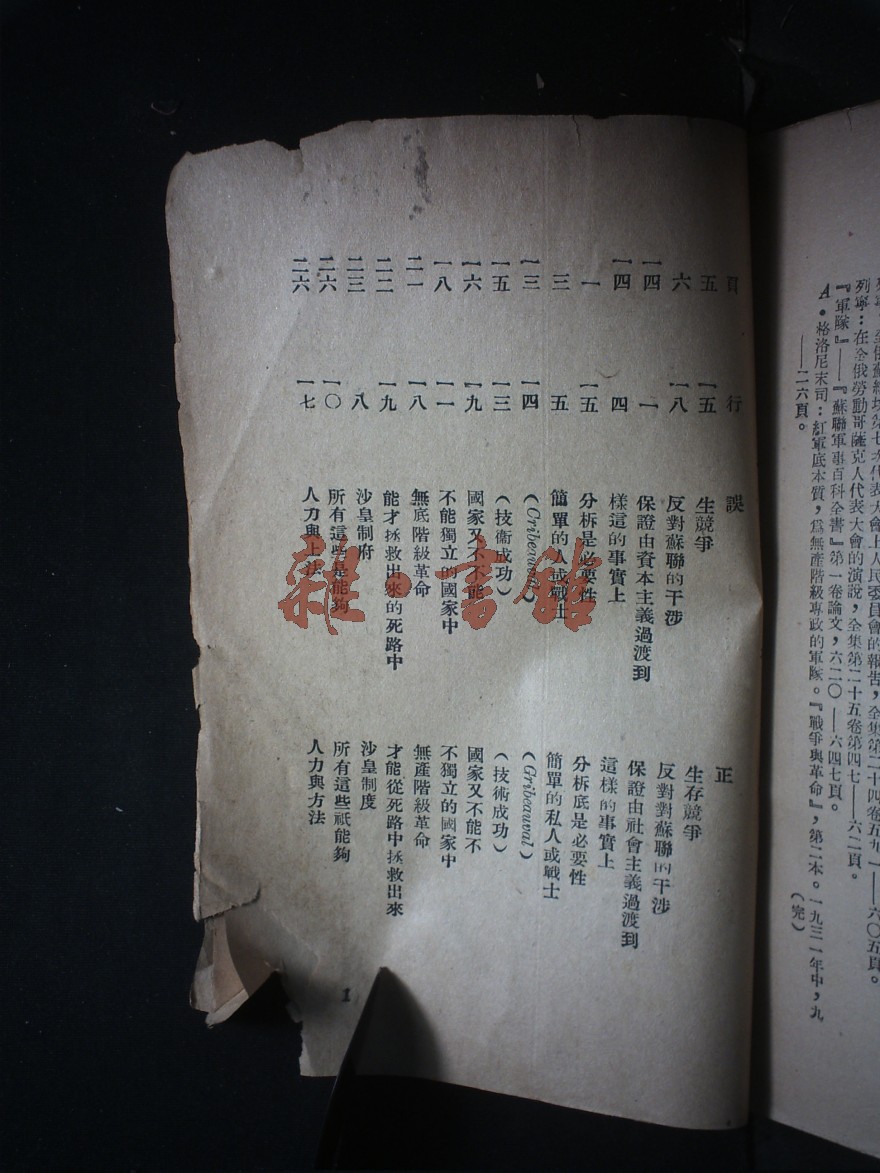 全俄蘇維埃第七次代表大會上人民委員會的報告，全集第二十四卷五九一——六〇五頁。
列寧：在全俄勞動哥薩克人代表大會的演說，全集第二十五卷第四七——六二頁。
『軍隊』——『蘇聯軍事百科全書』第一卷論文，六二〇——六四七頁。
A·格洛尼末司：紅軍底本質，爲無產階級專政的軍隊。『戰爭與革命』，第二本。一九三一年中，九
——二六頁。
（完）
頁 行 誤 正
五 一五 生競爭 生存競爭
六 一八 反對蘇聯的干涉 反對對蘇聯的干涉
一四 一 保證由資本主義過渡到 保證由社會主義過渡到
一四 四 樣這的事實上 這樣的事實上
一 一五 分柝是必要性 分柝底是必要性
三 五 簡單的人或戰士 簡單的私人或戰士
一三 一四 (Gribeauval)
一五 一三 （技術成功） （技術成功）
一六 一九 國家又不不能 國家又不能不
一八 一一 不能獨立的國家中 不獨立的國家中
二一 一八 無底階級革命 無產階級革命
二二 一九 能才拯救出來的死路中 才能從死路中拯救出來
二三 八 沙皇制府 沙皇制度
二六 一〇 所有這些是能夠 所有這些祇能夠
二六 一七 人力與上法 人力與方法
1
雜·書館